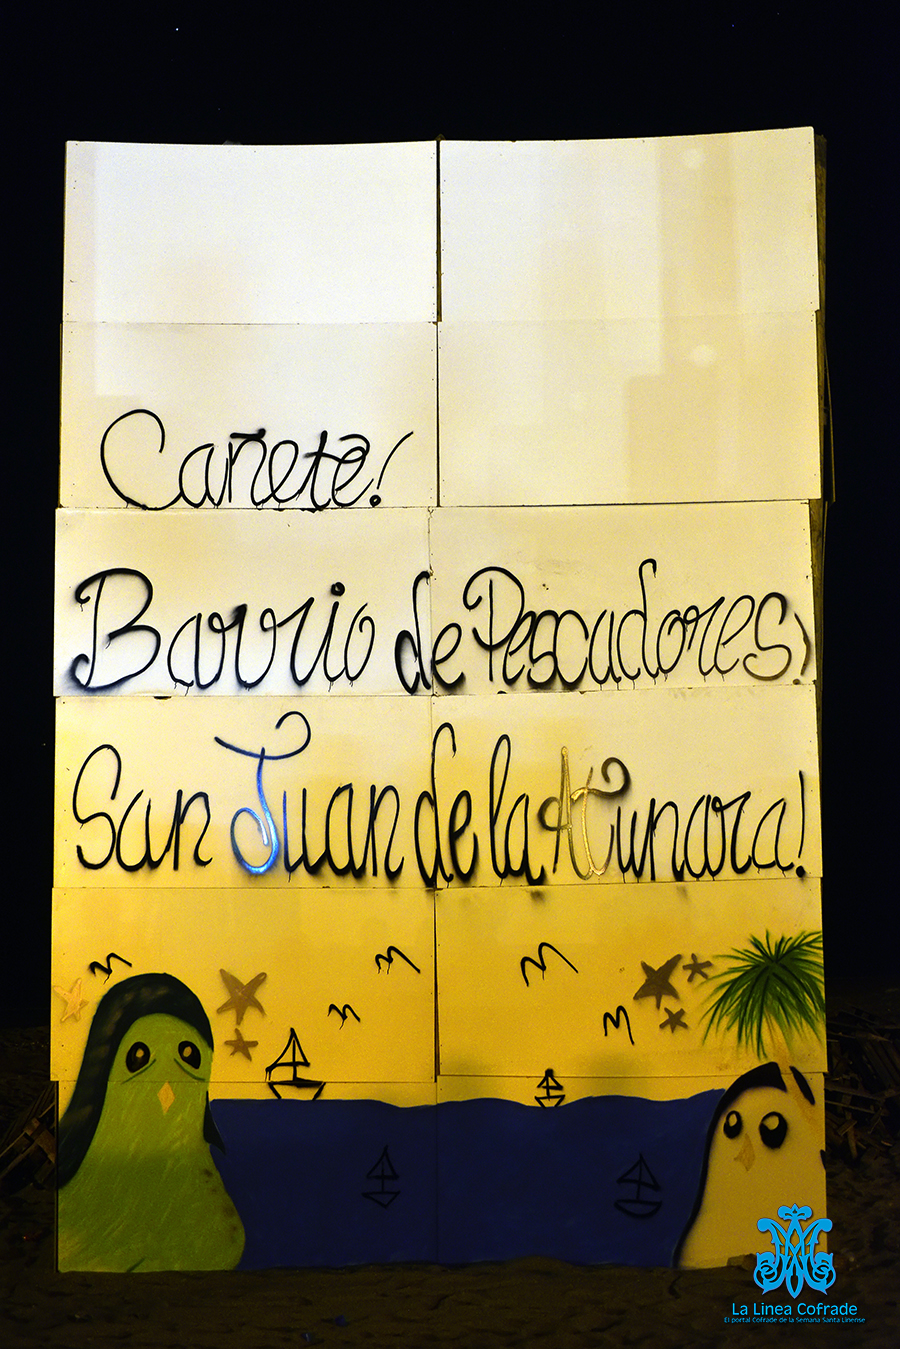 Cañete!
Barrio de Pescadores!
San Juan de la Atunara!
La Linea Cofrade
El portal Cofrade de la Semana Santa Linense